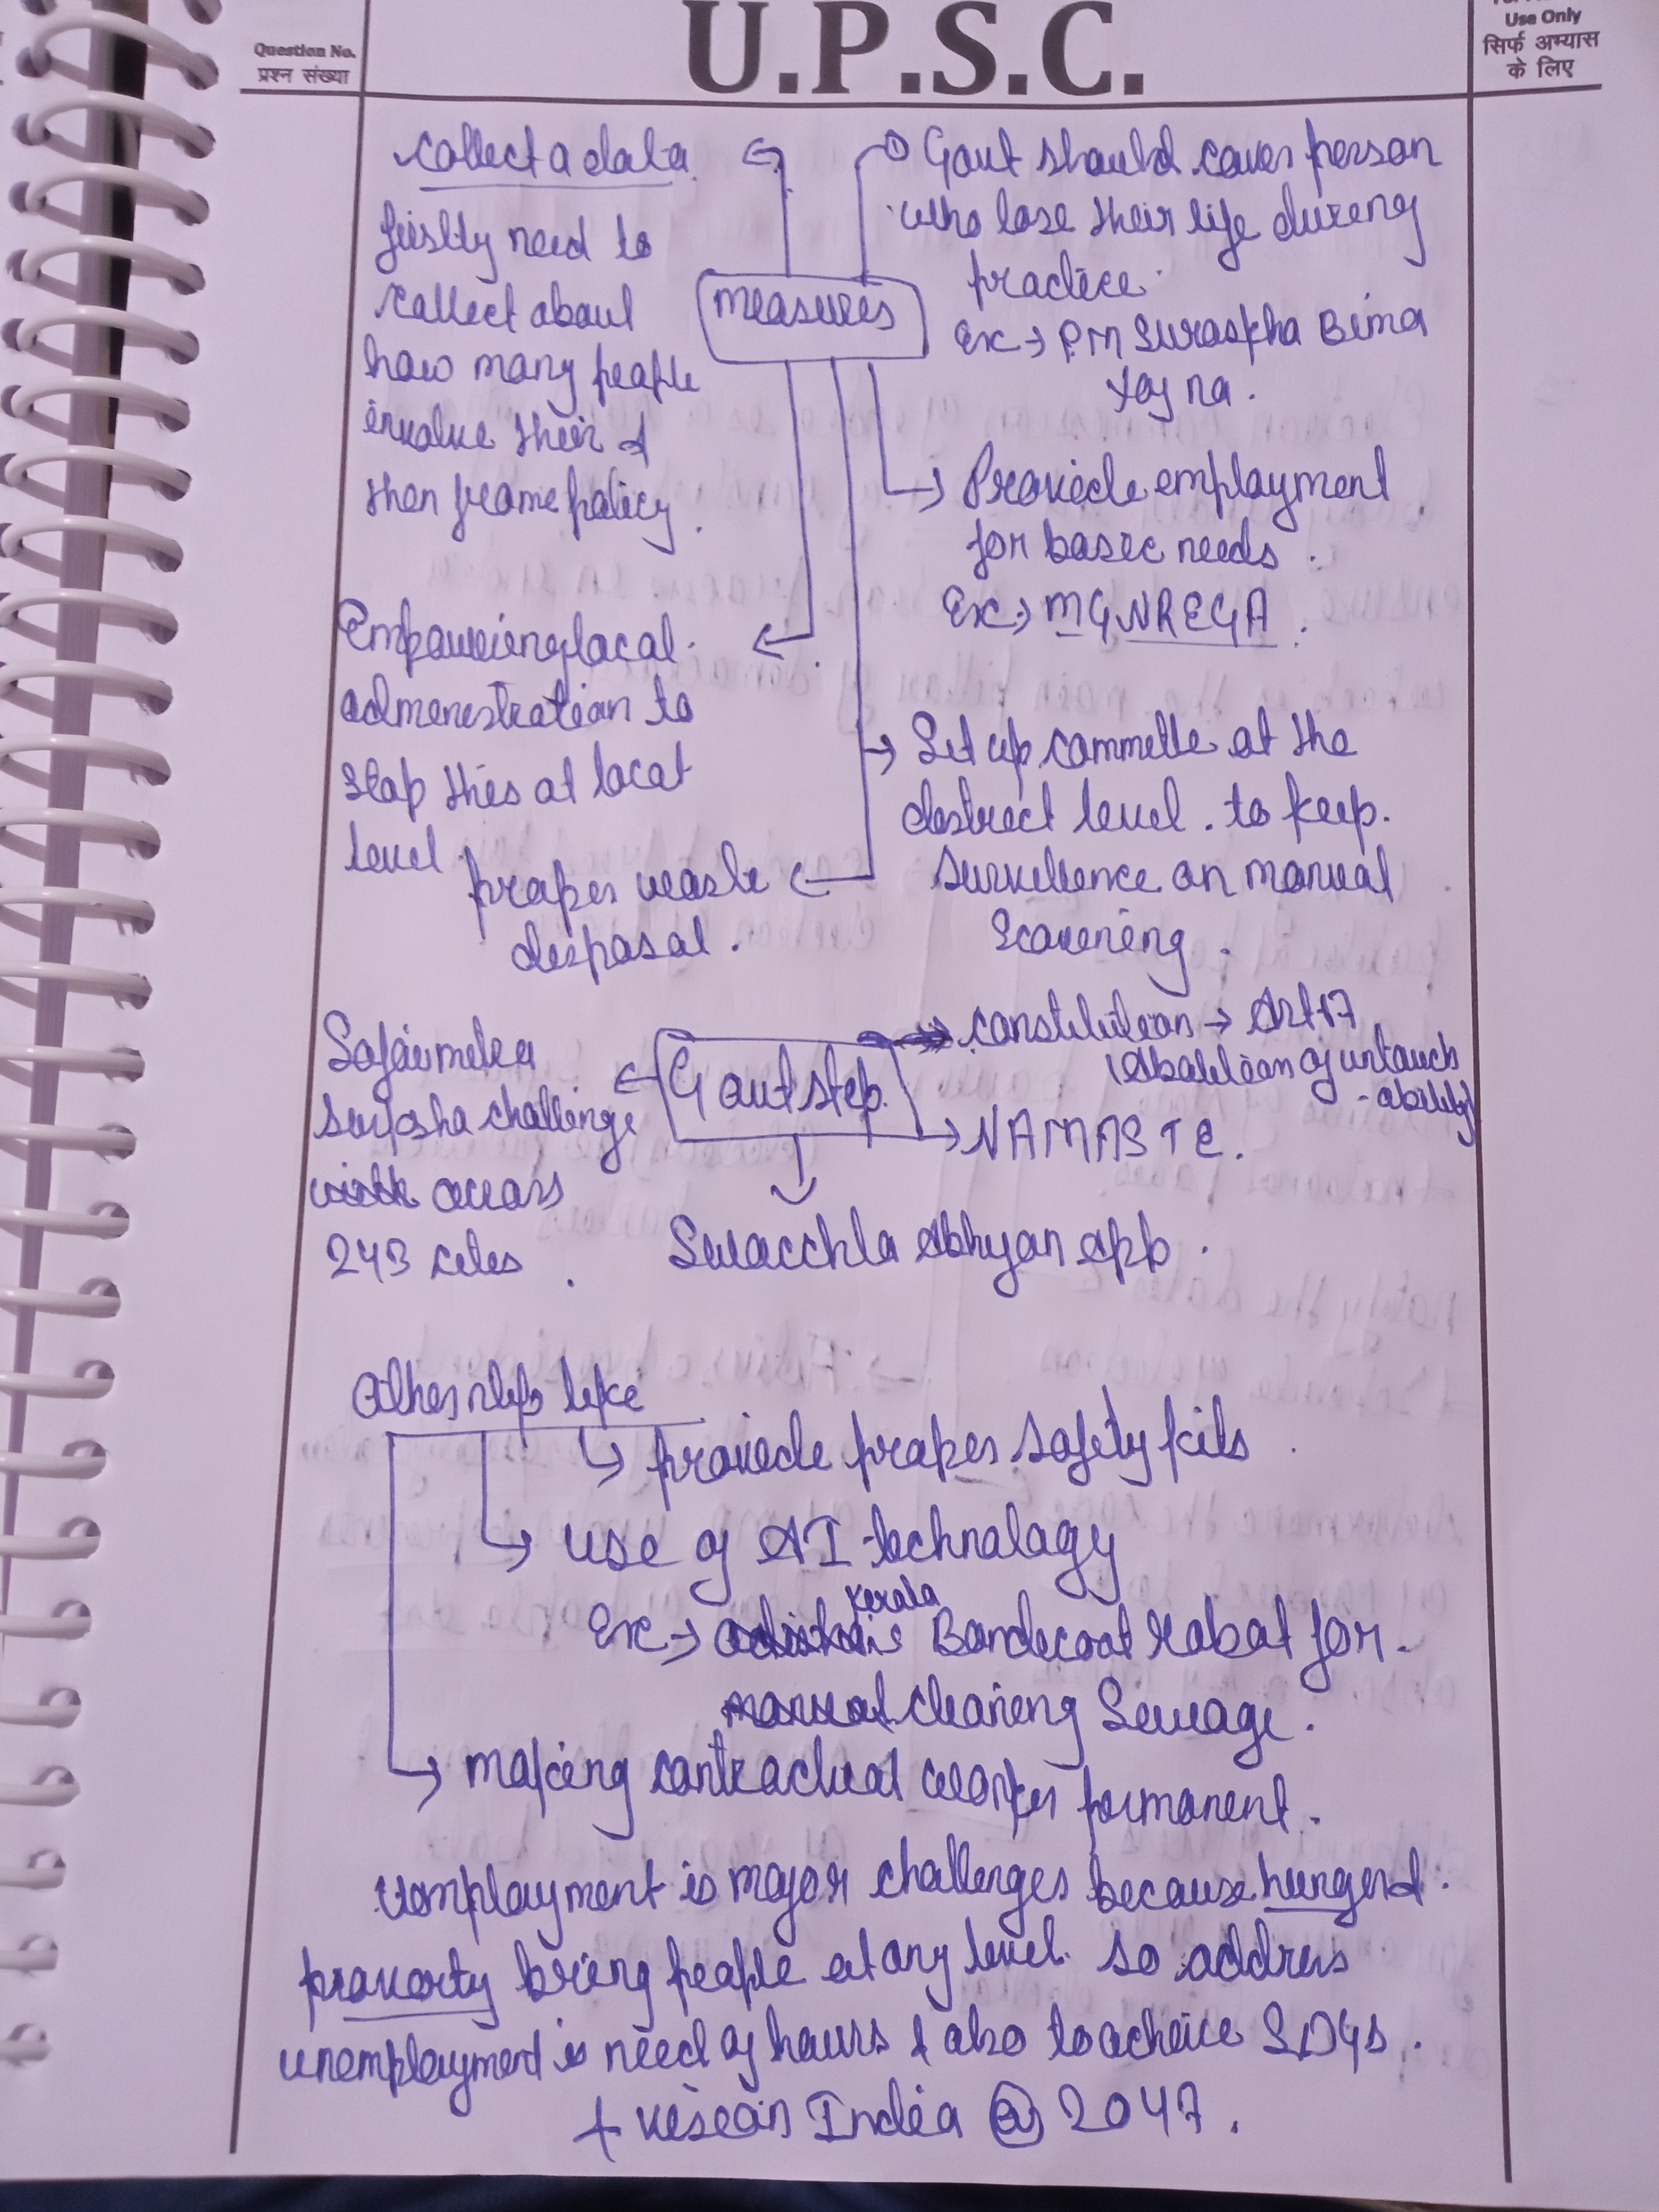 Question No.
प्रश्न संख्या
U.P.S.C.
Use Only
सिर्फ अभ्यास
के लिए
collect a data
firstly need to
collect about
how many people
involve their &
then frame policy.
Govt should cover person
who lose their life during
practice.
Ex→ PM Suraskha Bima
Yojna.
measures
Provide employment
for basic needs.
Ex→ MGNREGA.
Empowering local
administration to
stop this at local
level.
Set up committe at the
district level. to keep.
survellence on manual
Scavening.
proper waste
disposal.
Safaimitra
Surksha challenge
with across
243 cities.
Govt step.
constitution → Art 17
(Abolition of untouch
-ability)
NAMASTE.
Swacchta Abhyan app.
Other steps like
provide proper safety kits.
use of AI technology
Ex→ Kerala Bandecoot robot for.
manual cleaning Sewage.
making contractual worker permanent.
Unmployment is major challenges because hunger &.
proverty bring people at any level. so address
unemployment is need of hours & also to acheive SDGs.
+ vision India @ 2047.